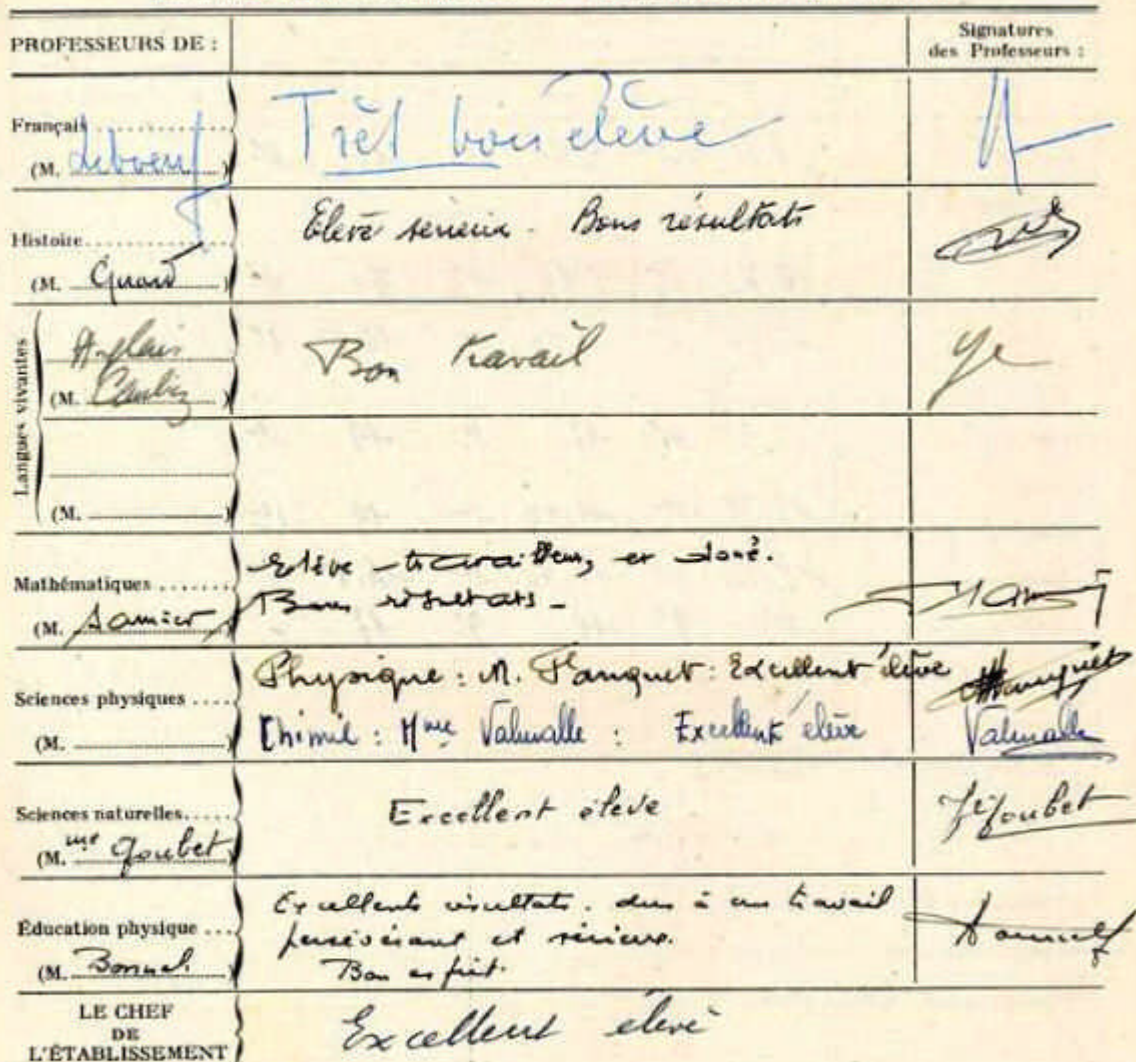 PROFESSEURS DE :
Signatures des Professeurs :
Français
(M. Leboeuf)
Très bon élève
Histoire
(M.
Elève sérieux. Bons résultats
Langues vivantes
Anglais
(M.
Bon travail
(M.
Mathématiques
(M.
Elève travailleur, et doué.
Bons résultats -
Sciences physiques
(M.
Physique : M. Fanquet : Excellent élève
Chimie : Mme Valmalle : Excellent élève
Valmalle
Sciences naturelles
(M.me Joubet)
Excellent élève
Joubet
Éducation physique
(M. Bonnel)
Excellents résultats. dus à un travail
persévérant et sérieux.
Bon esprit.
LE CHEF
DE
L'ÉTABLISSEMENT
Excellent élève